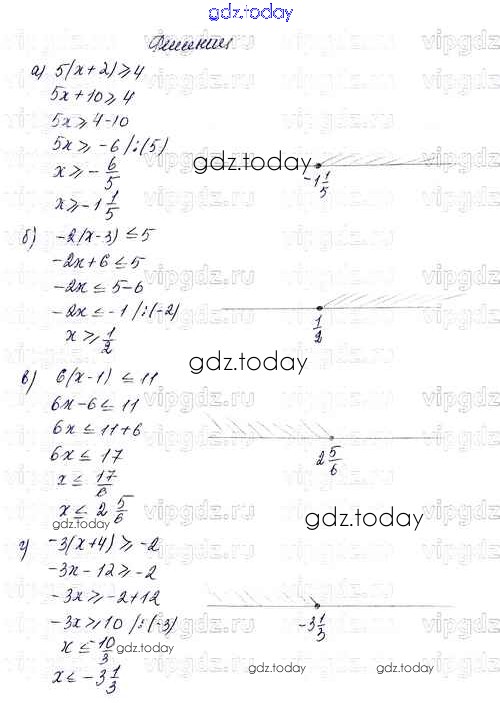 gdz.today
Решения
а) 5(x+2) ≥ 4
5x+10 ≥ 4
5x ≥ 4-10
5x ≥ -6 /:(5)
x ≥ - 6/5
gdz.today
-1 1/5
x ≥ -1 1/5
б) -2(x-3) ≤ 5
-2x+6 ≤ 5
-2x ≤ 5-6
-2x ≤ -1 /:(-2)
1/2
x ≥ 1/2
gdz.today
в) 6(x-1) ≤ 11
6x-6 ≤ 11
6x ≤ 11+6
6x ≤ 17
2 5/6
x ≤ 17/6
x ≤ 2 5/6
gdz.today
gdz.today
г) -3(x+4) ≥ -2
-3x-12 ≥ -2
-3x ≥ -2+12
-3x ≥ 10 /:(-3)
-3 1/3
x ≤ 10/3
gdz.today
x ≤ -3 1/3
gdz.today
gdz.today
vipgdz.ru